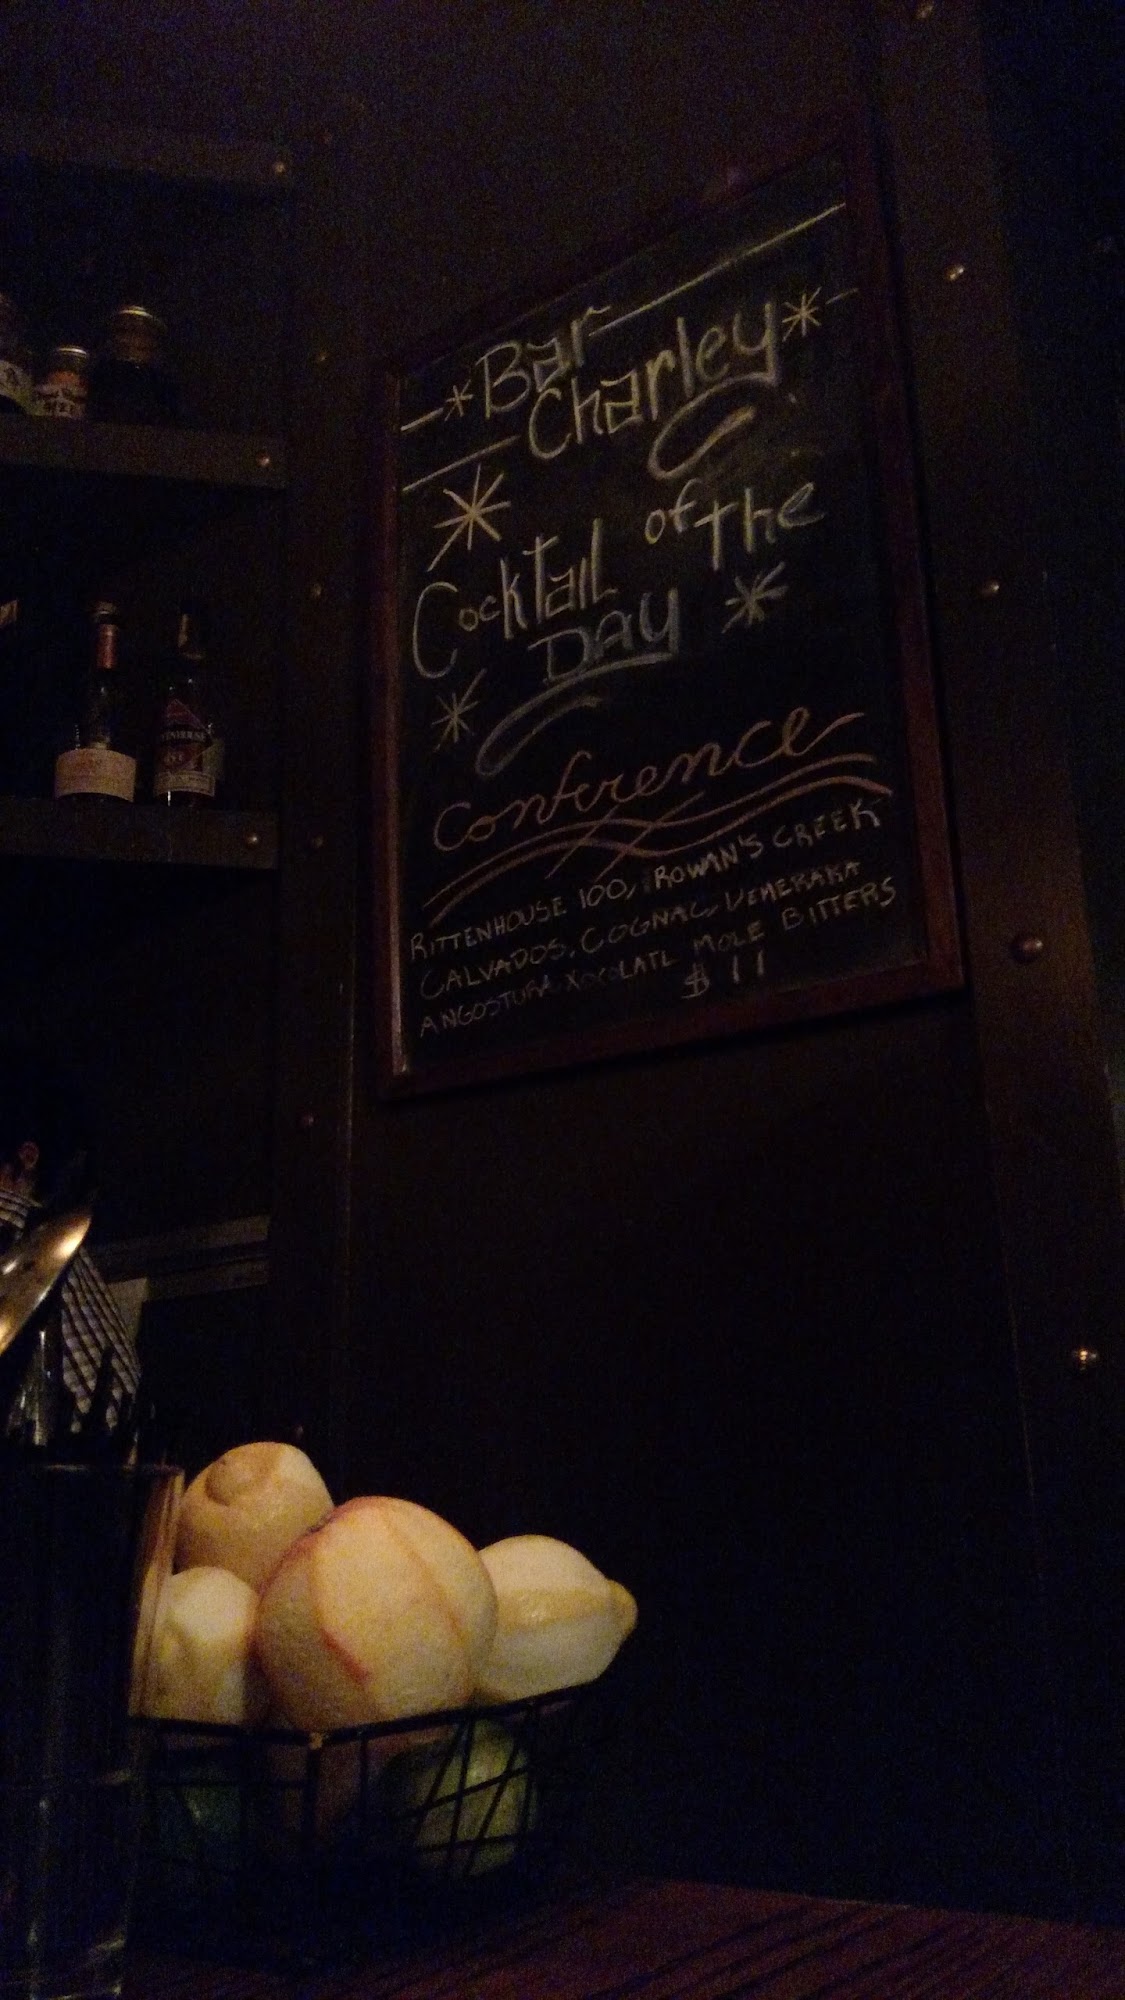 Bar
Charley
Cocktail of the
DAY
Conference
RITTENHOUSE 100, ROWAN'S CREEK
CALVADOS, COGNAC, DEMERARA
ANGOSTURA XOCOLATL MOLE BITTERS
$11